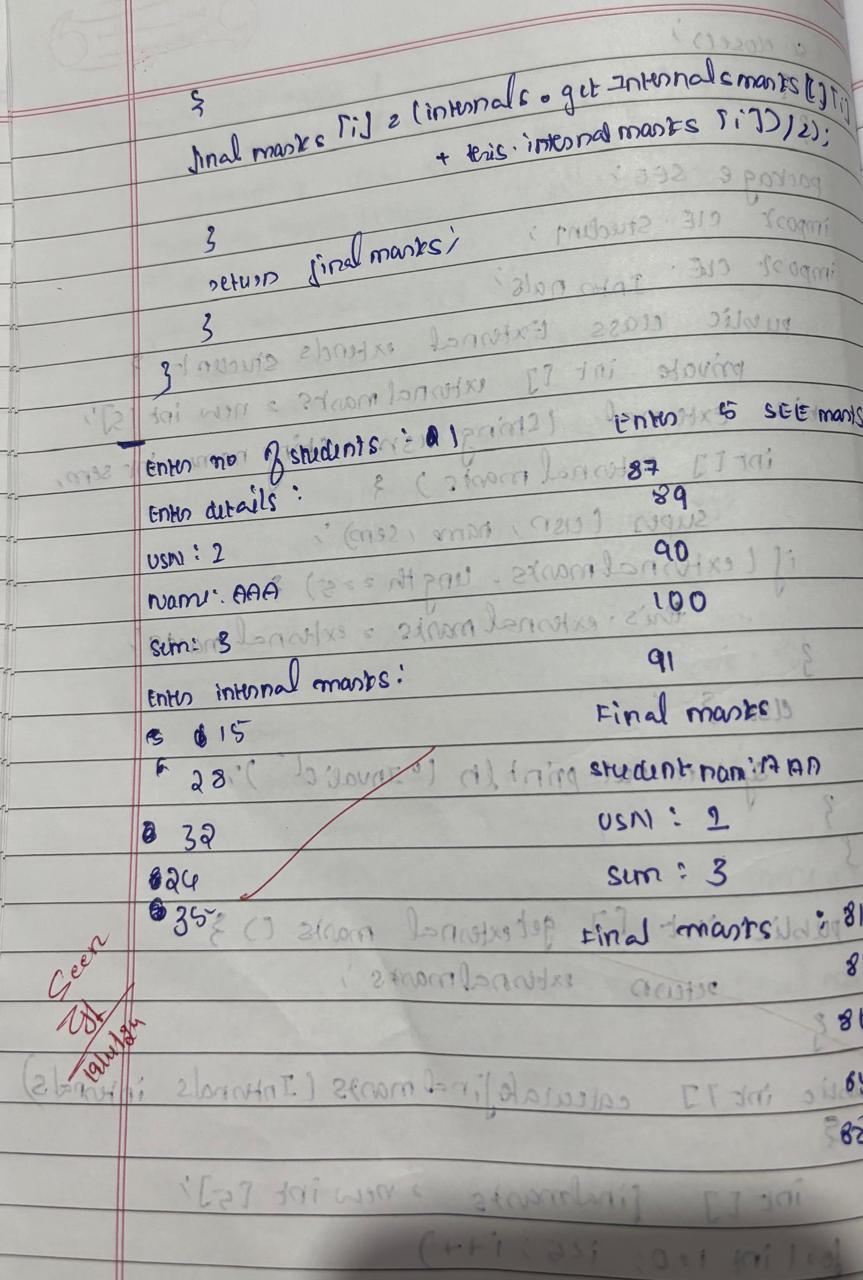 }
final marks [i] = (internals.get Internals marks()[i]
+ this.internal marks [i])/2);
}
return final marks;
}
}
Enter no of students : 1
Enter details :
USN : 2
Name : AAA
Sem: 3
Enter internal marks :
15
28
32
24
35
Enter 5 SEE marks
87
89
90
100
91
Final marks
student nam : AAA
USN : 2
Sem : 3
Final marks : 81
8
81
82
Seen